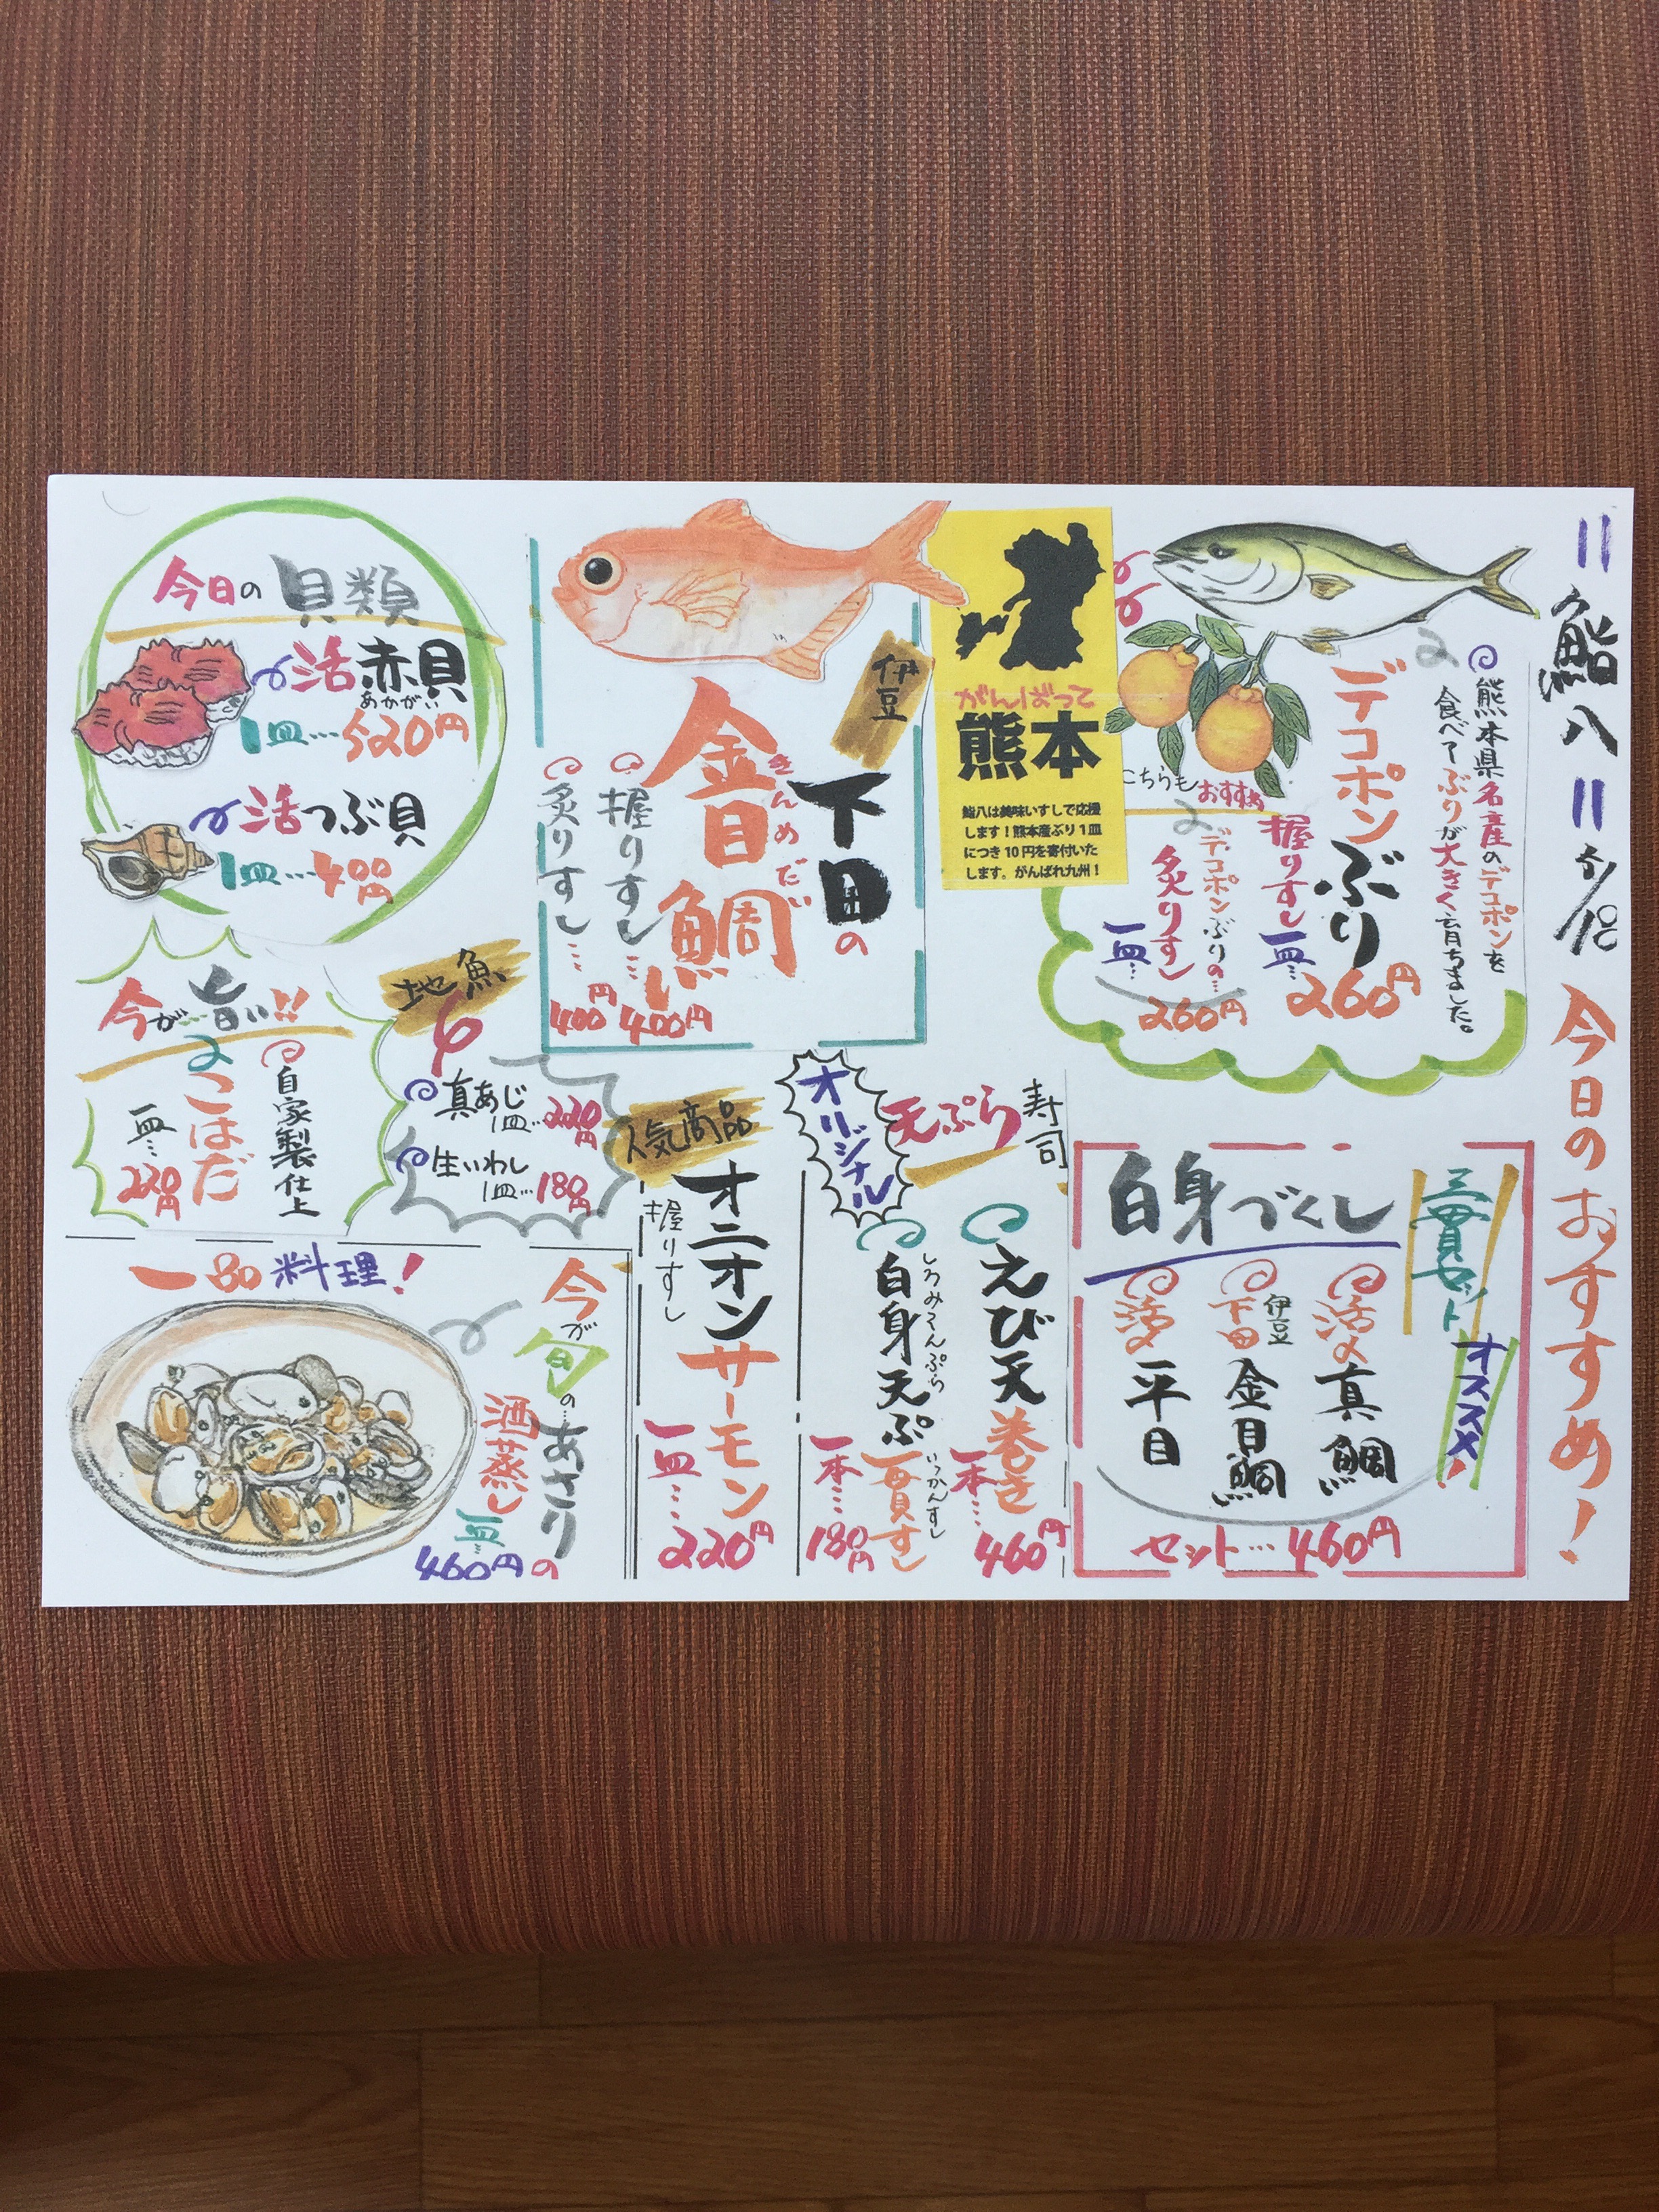 〃鮨八〃 5/18 今日のおすすめ!
熊本県名産のデコポンを
食べてぶりが大きく育ちました。
デコポンぶり
握りすし
一皿…260円
こちらもおすすめ
デコポンぶりの…
炙りすし
一皿…
260円
がんばって
熊本
鮨八は美味いすしで応援
します!熊本産ぶり1皿
につき10円を寄付いた
します。がんばれ九州!
伊豆
下田の
金目鯛
きんめだい
握りすし…400円
炙りすし…400円
今日の貝類
活赤貝
あかがい
1皿…520円
活つぶ貝
1皿…400円
三貫セット
オススメ!
白身づくし
活〆真鯛
伊豆
下田
金目鯛
活〆平目
セット…460円
寿司
天ぷら
オリジナル
えび天巻き
一本…460円
しろみてんぷら
いっかんすし
白身天ぷ
一貫すし
一本…180円
人気商品
オニオンサーモン
握りすし
一皿…220円
地魚
真あじ
1皿…220円
生いわし
1皿…180円
今が旨い!!
自家製仕上
こはだ
一皿…220円
一品料理!
今が旬の…
あさりの
酒蒸し
一皿…
460円